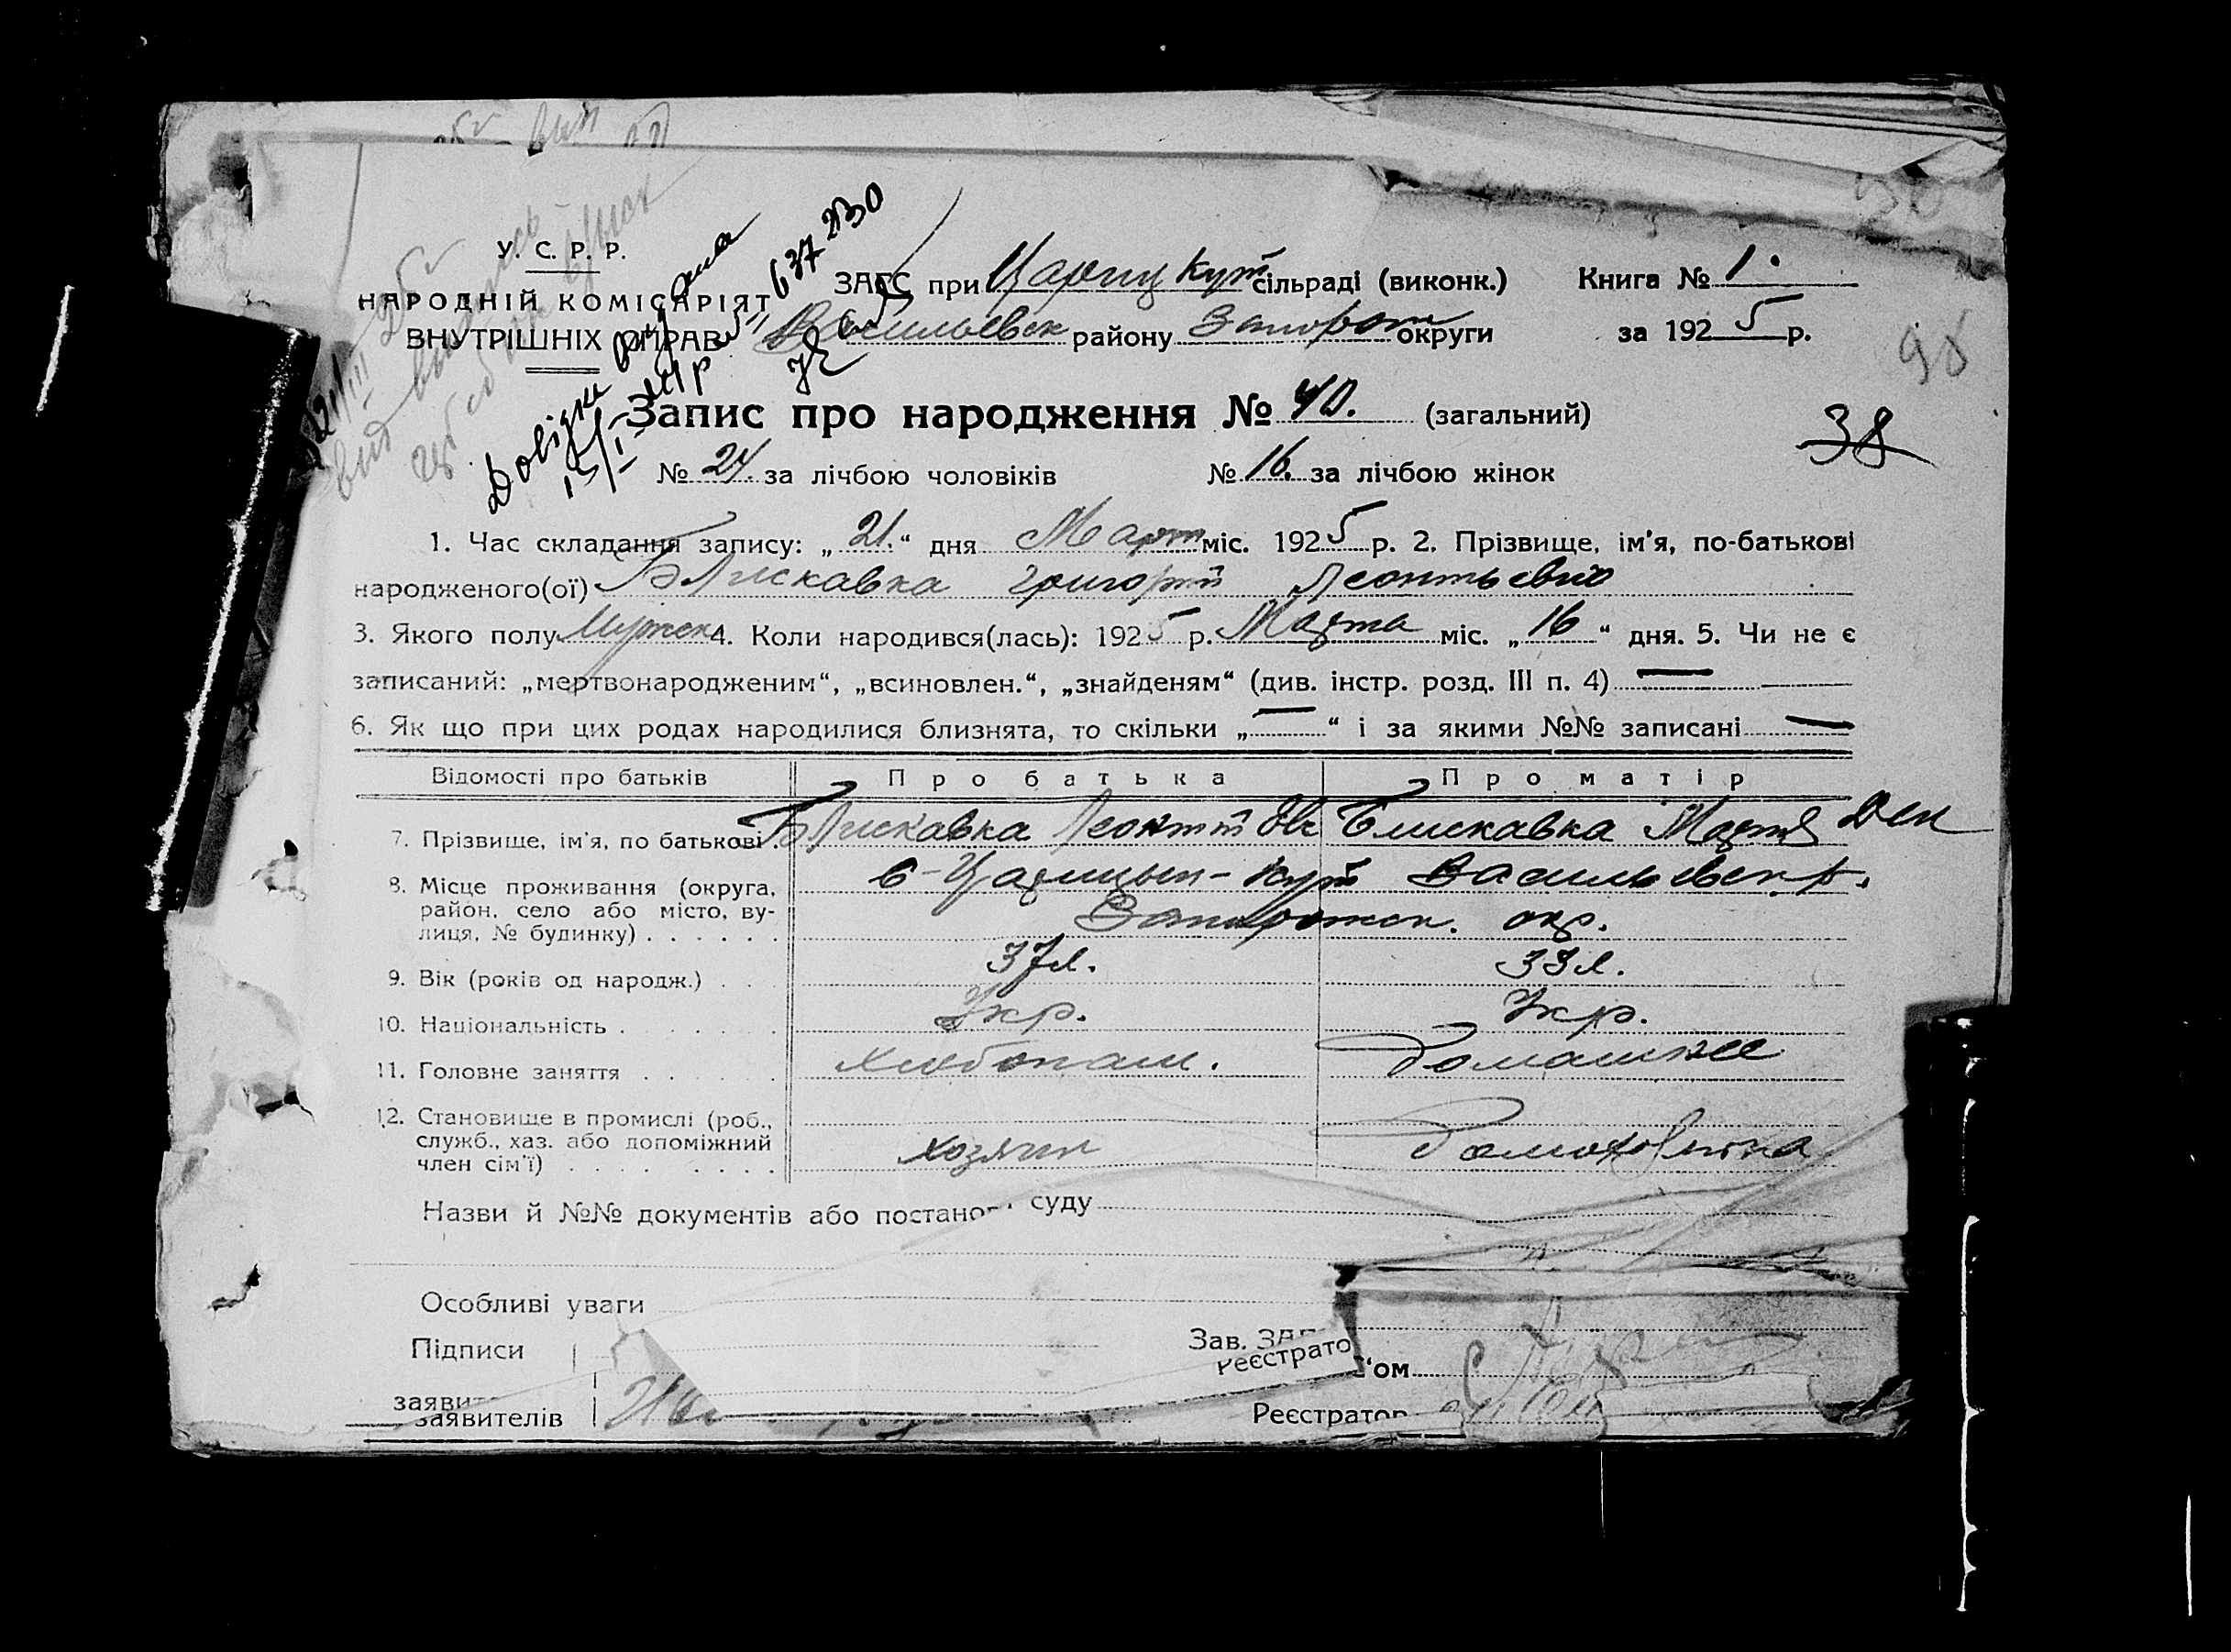 У. С. Р. Р.
НАРОДНІЙ КОМІСАРІЯТ
ВНУТРІШНІХ СПРАВ
Довідка
637 2130
ЗАГС при Цариц Кут сільраді (виконк.) Книга № 1.
Васильевск району Запорож округи за 1925 р.
98
Запис про народження № 40. (загальний)
38
№ 24. за лічбою чоловіків № 16. за лічбою жінок
1. Час складання запису: „21.“ дня Март міс. 1925 р. 2. Прізвище, ім'я, по-батькові
народженого(ої) Блискавка Григорий Леонтьевич
3. Якого полу Мужск 4. Коли народився(лась): 1925 р. Марта міс. „16“ дня. 5. Чи не є
записаний: „мертвонародженим“, „всиновлен.“, „знайденям“ (див. інстр. розд. III п. 4) —
6. Як що при цих родах народилися близнята, то скільки „—“ і за якими №№ записані —
Відомості про батьків Про батька Про матір
7. Прізвище, ім'я, по батькові. Блискавка Леонтий Блискавка Марфа
8. Місце проживання (округа, район, село або місто, вулиця, № будинку) . . . . . . с-Царицын-Кут Васильевск. р.
Запорожск. окр.
9. Вік (років од народж.) . . . 37 л. 33 л.
10. Національність . . . . . . . Укр. Укр.
11. Головне заняття . . . . . Хлебопаш. Домашнее
12. Становище в промислі (роб., служб., хаз. або допоміжний член сім'ї) . . . . . . . . Хозяин Домохозяйка
Назви й №№ документів або постанов суду
Особливі уваги
Підписи Зав. ЗАГС'ом
заявителів Реєстратор